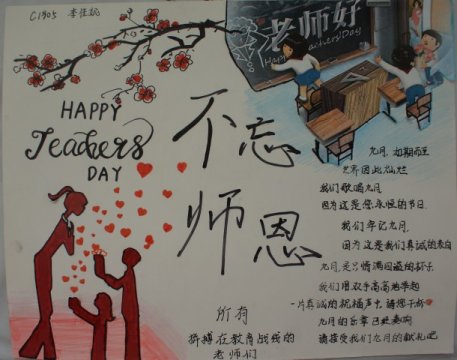 C1905 李佳
老师好
Happy Teachers' Day
HAPPY
Teachers'
DAY
不忘
师恩
九月，如期而至
世界因此灿烂
我们歌唱九月
因为这是您永恒的节日
我们牢记九月
因为这是我们真诚的表白
九月是只情满四溢的杯子
我们用双手高高地举起
一片真诚的祝福声中请您干杯
九月的乐章已经奏响
请接受我们九月的献礼吧
所有
拼搏在教育战线的
老师们